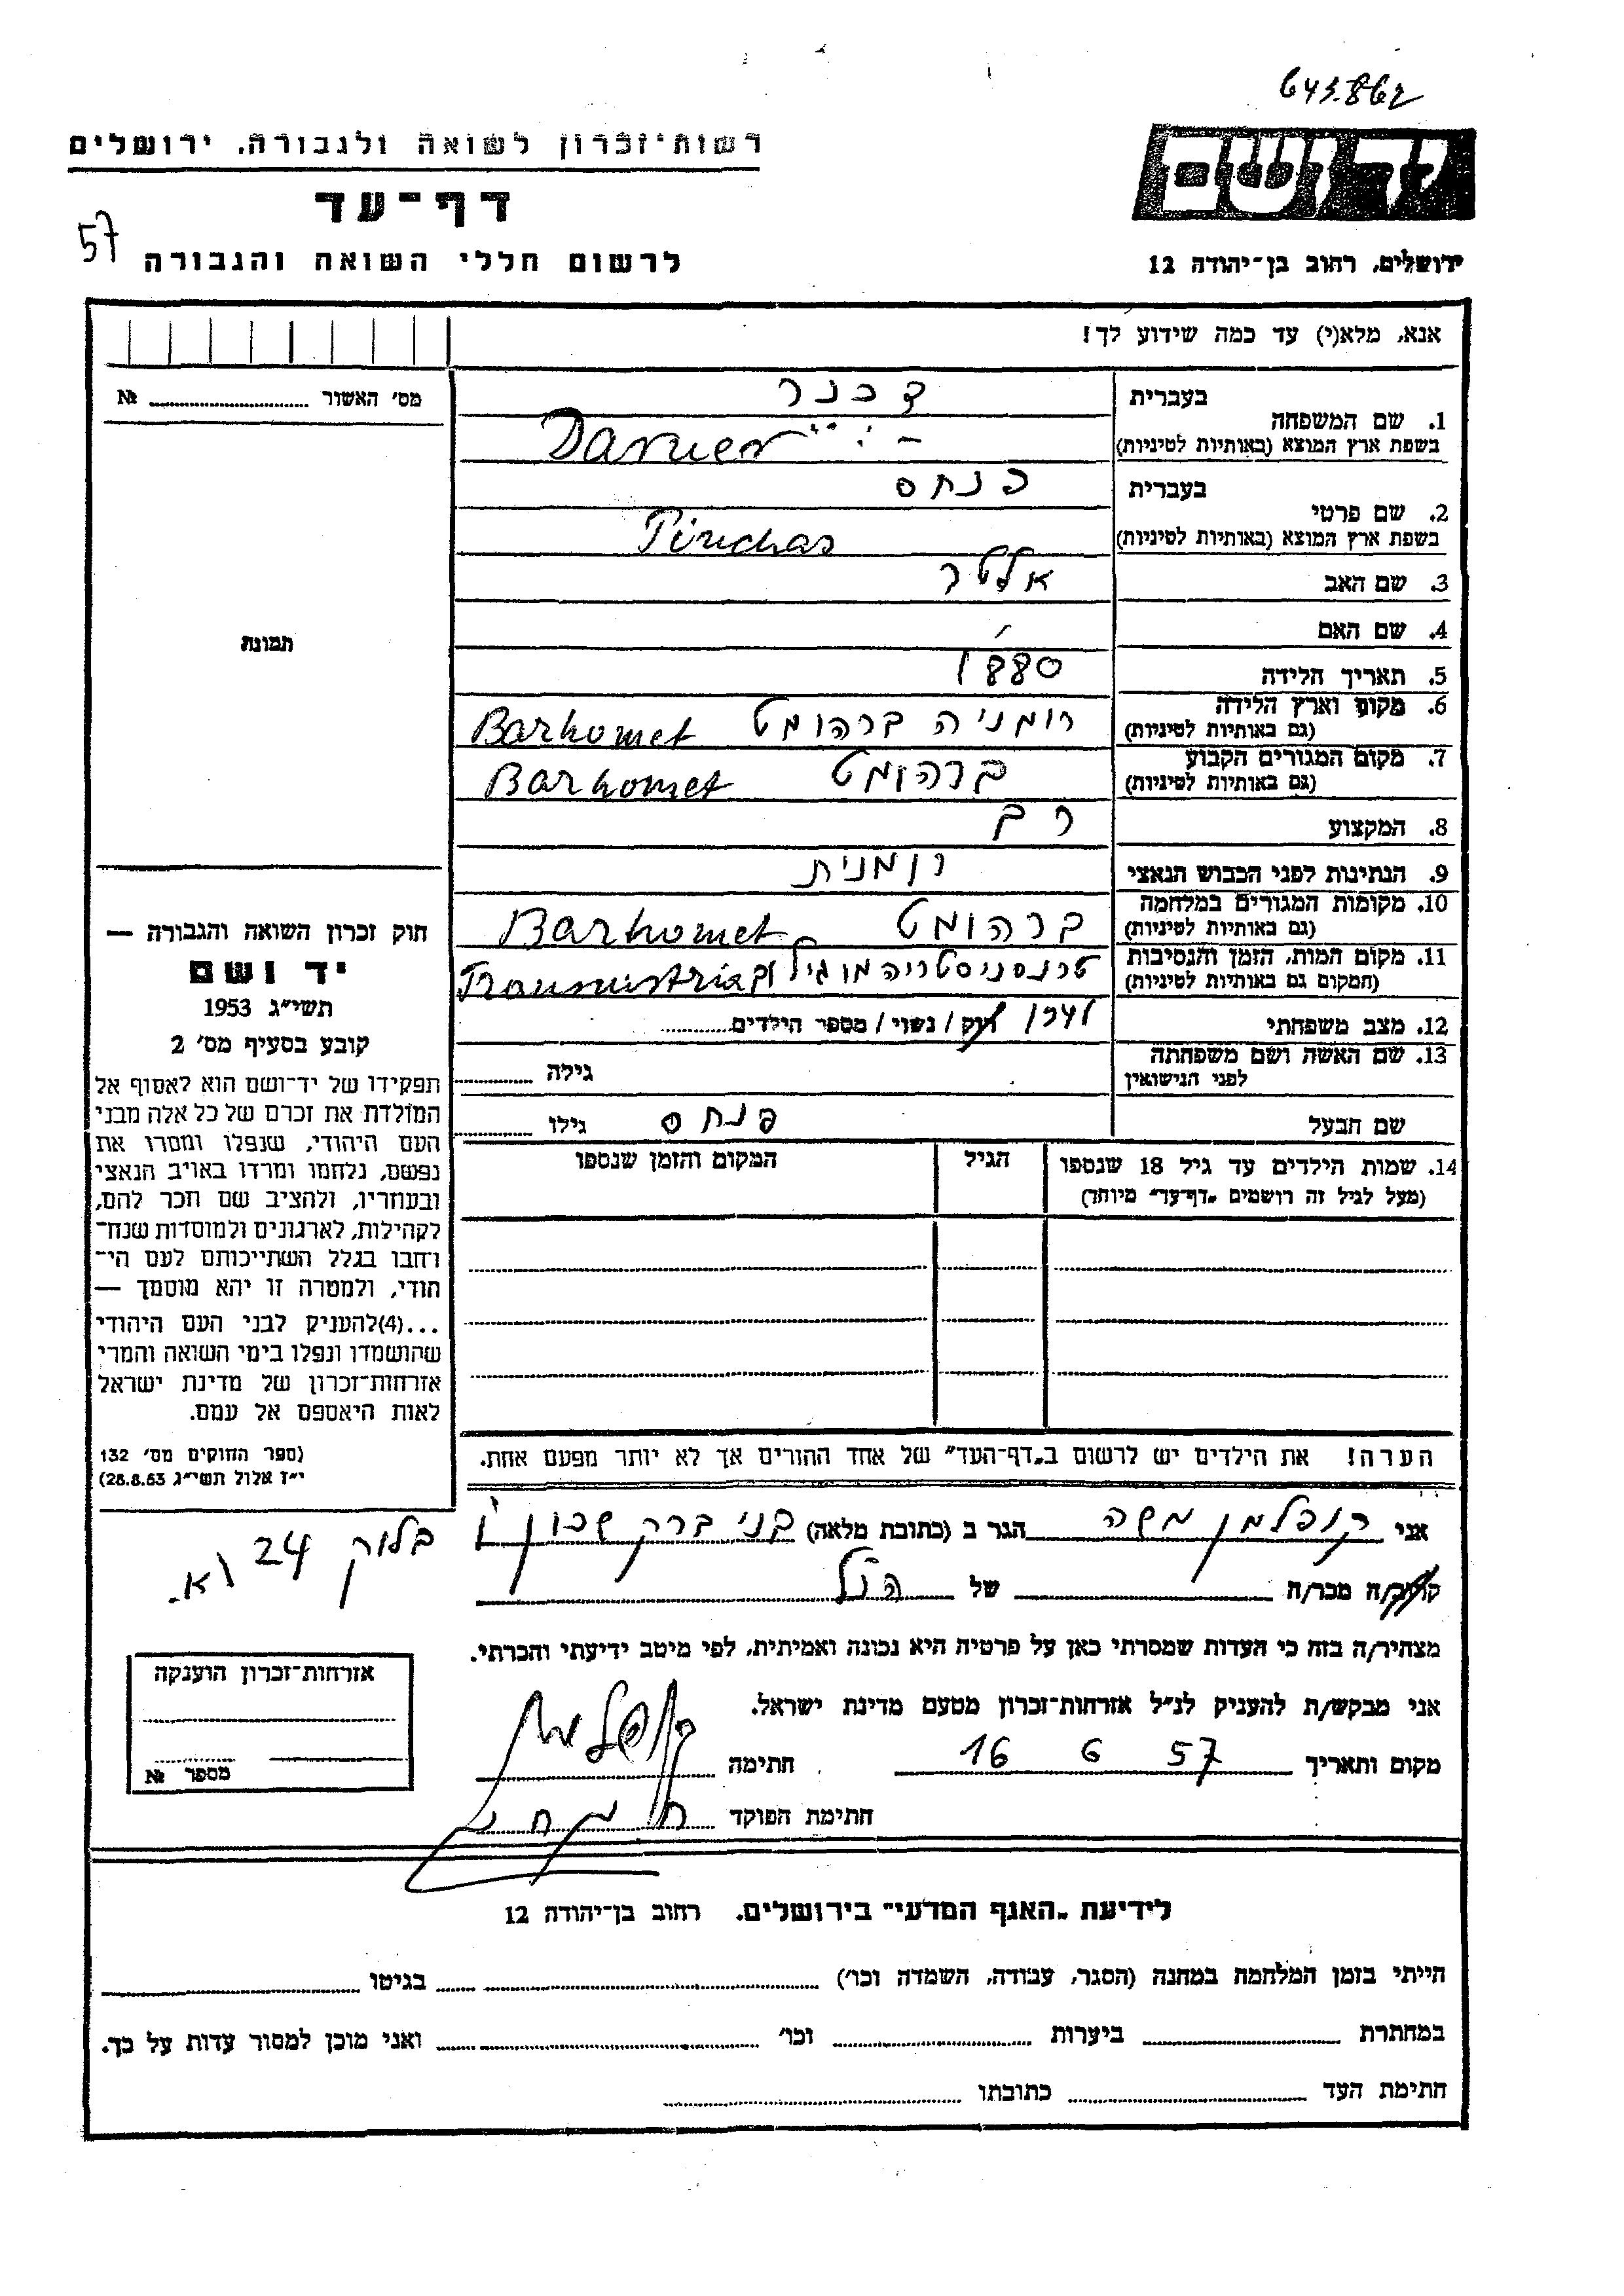 643.862
רשות־זכרון לשואה ולגבורה, ירושלים
דף־עד
57
לרשום חללי השואה והגבורה
יד ושם
ירושלים, רחוב בן־יהודה 12
אנא, מלא(י) עד כמה שידוע לך!
מס׳ האשור № 
בעברית
1. שם המשפחה
בשפת ארץ המוצא (באותיות לטיניות)
בעברית פנחס
2. שם פרטי
בשפת ארץ המוצא (באותיות לטיניות) Pinchas
3. שם האב אלטר
4. שם האם
5. תאריך הלידה 1880
6. מקום וארץ הלידה רומניה ברהומט Barhomet
(גם באותיות לטיניות)
7. מקום המגורים הקבוע ברהומט Barhomet
(גם באותיות לטיניות)
8. המקצוע
9. הנתינות לפני הכבוש הנאצי רומנית
10. מקומות המגורים במלחמה ברהומט Barhomet
(גם באותיות לטיניות)
11. מקום המות, הזמן והנסיבות טרנסניסטריה
(המקום גם באותיות לטיניות)
12. מצב משפחתי רוק / נשוי / מספר הילדים
13. שם האשה ושם משפחתה
לפני הנישואין גילה
שם הבעל פנחס גילו
14. שמות הילדים עד גיל 18 שנספו הגיל המקום והזמן שנספו
(מעל לגיל זה רושמים „דף־עד״ מיוחד)
הערה! את הילדים יש לרשום ב„דף־העד״ של אחד ההורים אך לא יותר מפעם אחת.
תמונת
חוק זכרון השואה והגבורה —
יד ושם
תשי״ג 1953
קובע בסעיף מס׳ 2
תפקידו של יד־ושם הוא לאסוף אל
המולדת את זכרם של כל אלה מבני
העם היהודי, שנפלו ומסרו את
נפשם, נלחמו ומרדו באויב הנאצי
ובעוזריו, ולהציב שם וזכר להם,
לקהילות, לארגונים ולמוסדות שנח־
רבו בגלל השתייכותם לעם הי־
הודי, ולמטרה זו יהא מוסמך —
...(4)להעניק לבני העם היהודי
שהושמדו ונפלו בימי השואה והמרי
אזרחות־זכרון של מדינת ישראל
לאות היאספם אל עמם.
(ספר החוקים מס׳ 132
י״ז אלול תשי״ג 28.8.53)
אני קופלמן משה הגר ב (כתובת מלאה) בני ברק שכון ו
בלוק 24 א.
קרוב/ה מכר/ה של הנ״ל
מצהיר/ה בזה כי העדות שמסרתי כאן על פרטיה היא נכונה ואמיתית, לפי מיטב ידיעתי והכרתי.
אני מבקש/ת להעניק לנ״ל אזרחות־זכרון מטעם מדינת ישראל.
מקום ותאריך 16 6 57 חתימה
חתימת הפוקד
אזרחות־זכרון הוענקה
מספר №
לידיעת „האגף המדעי״ בירושלים, רחוב בן־יהודה 12
הייתי בזמן המלחמה במחנה (הסגר, עבודה, השמדה וכו׳) בגיטו
במחתרת ביערות וכו׳ ואני מוכן למסור עדות על כך.
חתימת העד כתובתו